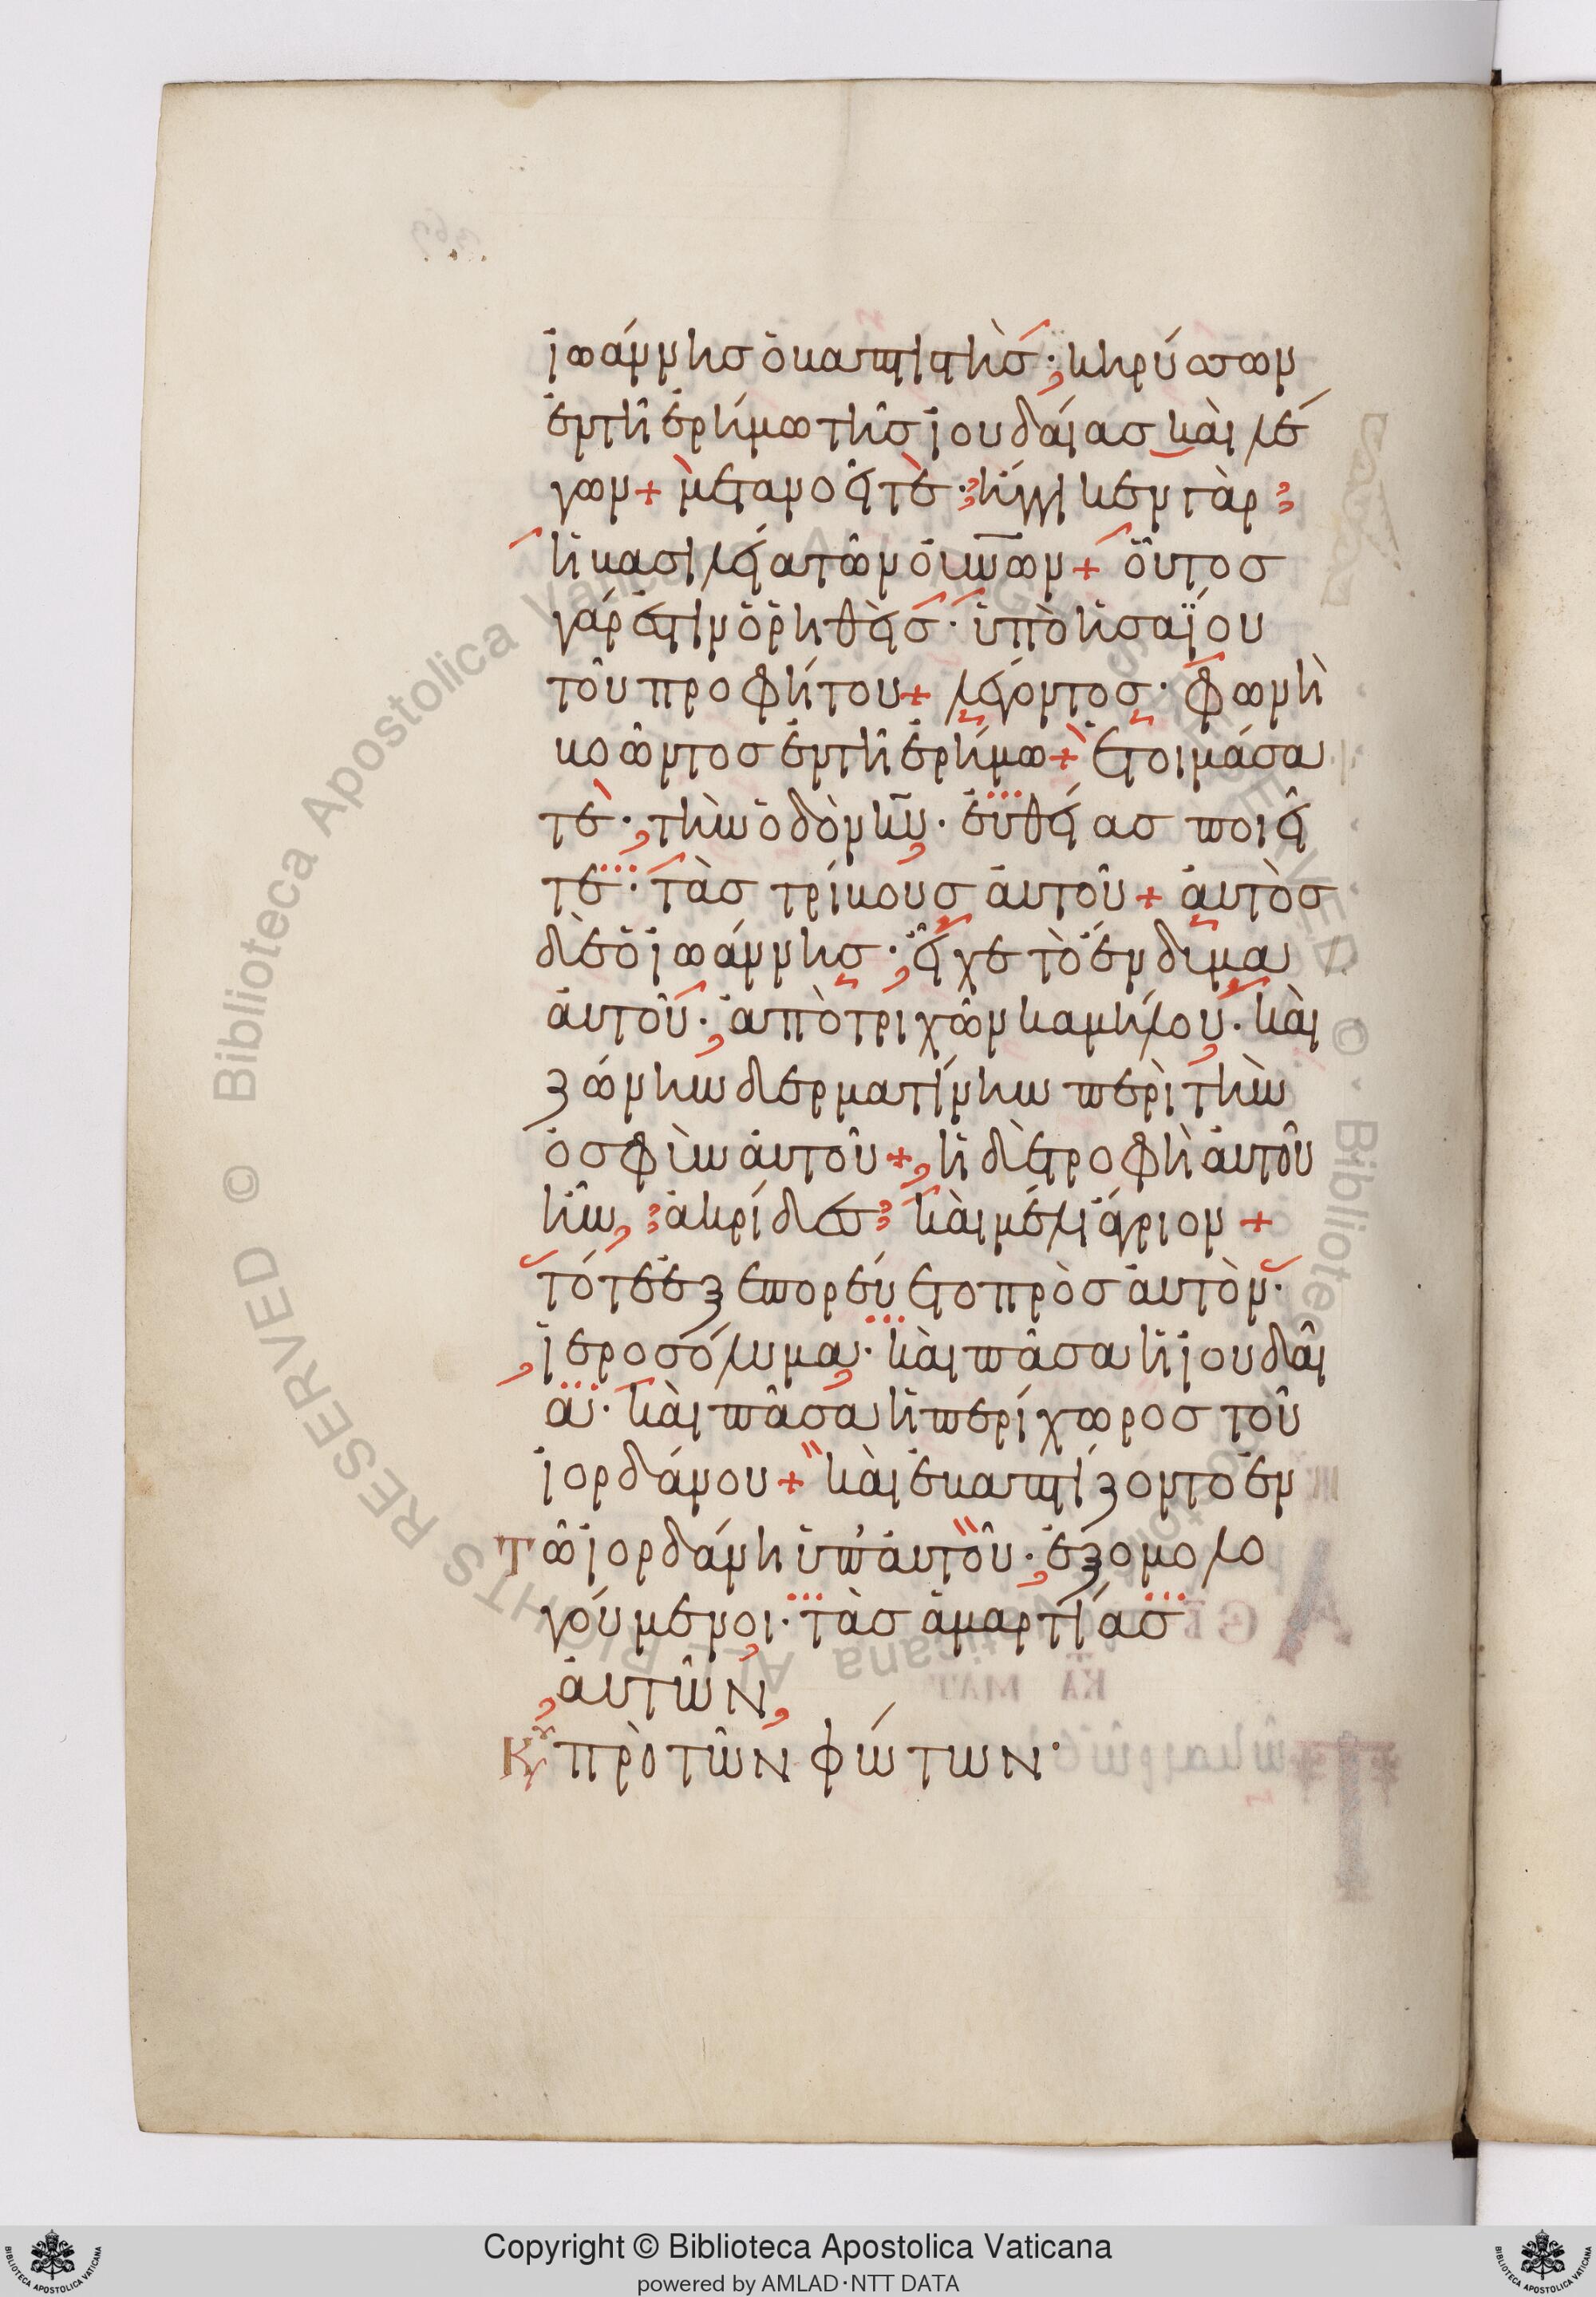 ἰωάννησ ὁ βαπτιστὴσ· κηρύσσων
ἐν τῆ ἐρήμω τῆσ ἰουδαίασ καὶ λέ
γων + μετανοεῖτε· ἤγγικεν γὰρ
ἡ βασιλεία τῶν οὐν̅ων + οὗτοσ
γάρ ἐστιν ὁ ῥηθεὶσ· ὑπὸ ἡσαϊου
τοῦ προφήτου + λέγοντοσ· φωνὴ
βοῶντοσ ἐν τῆ ἐρήμω + ἑτοιμάσα
τε· τὴν ὁδὸν κ̅υ· εὐθείασ ποιεῖ
τε· τὰσ τρίβουσ αὐτοῦ + αὐτὸσ
δὲ ὁ ἰωάννησ· εἶχε τὸ ἔνδιμα
αὐτοῦ· ἀπὸ τριχῶν καμήλου· καὶ
ζώνην δερματίνην περὶ τὴν
ὀσφὺν αὐτοῦ + ἡ δὲ τροφὴ αὐτοῦ
ἦν ἀκρίδεσ καὶ μέλι ἄγριον +
τότε ἐξεπορεύετο πρὸσ αὐτὸν·
ἱεροσόλυμα· καὶ πᾶσα ἡ ἰουδαῖ
α· καὶ πᾶσα ἡ περίχωροσ τοῦ
ἰορδάνου + καὶ ἐβαπτίζοντο ἐν
τῶ ἰορδάνη ὑπ' αὐτοῦ· ἐξομολο
γούμενοι· τὰσ ἁμαρτίασ
αὐτῶν
Κυ πρὸ τῶν φώτων·
© Biblioteca Apostolica Vaticana ALL RIGHTS RESERVED
Copyright © Biblioteca Apostolica Vaticana
powered by AMLAD·NTT DATA